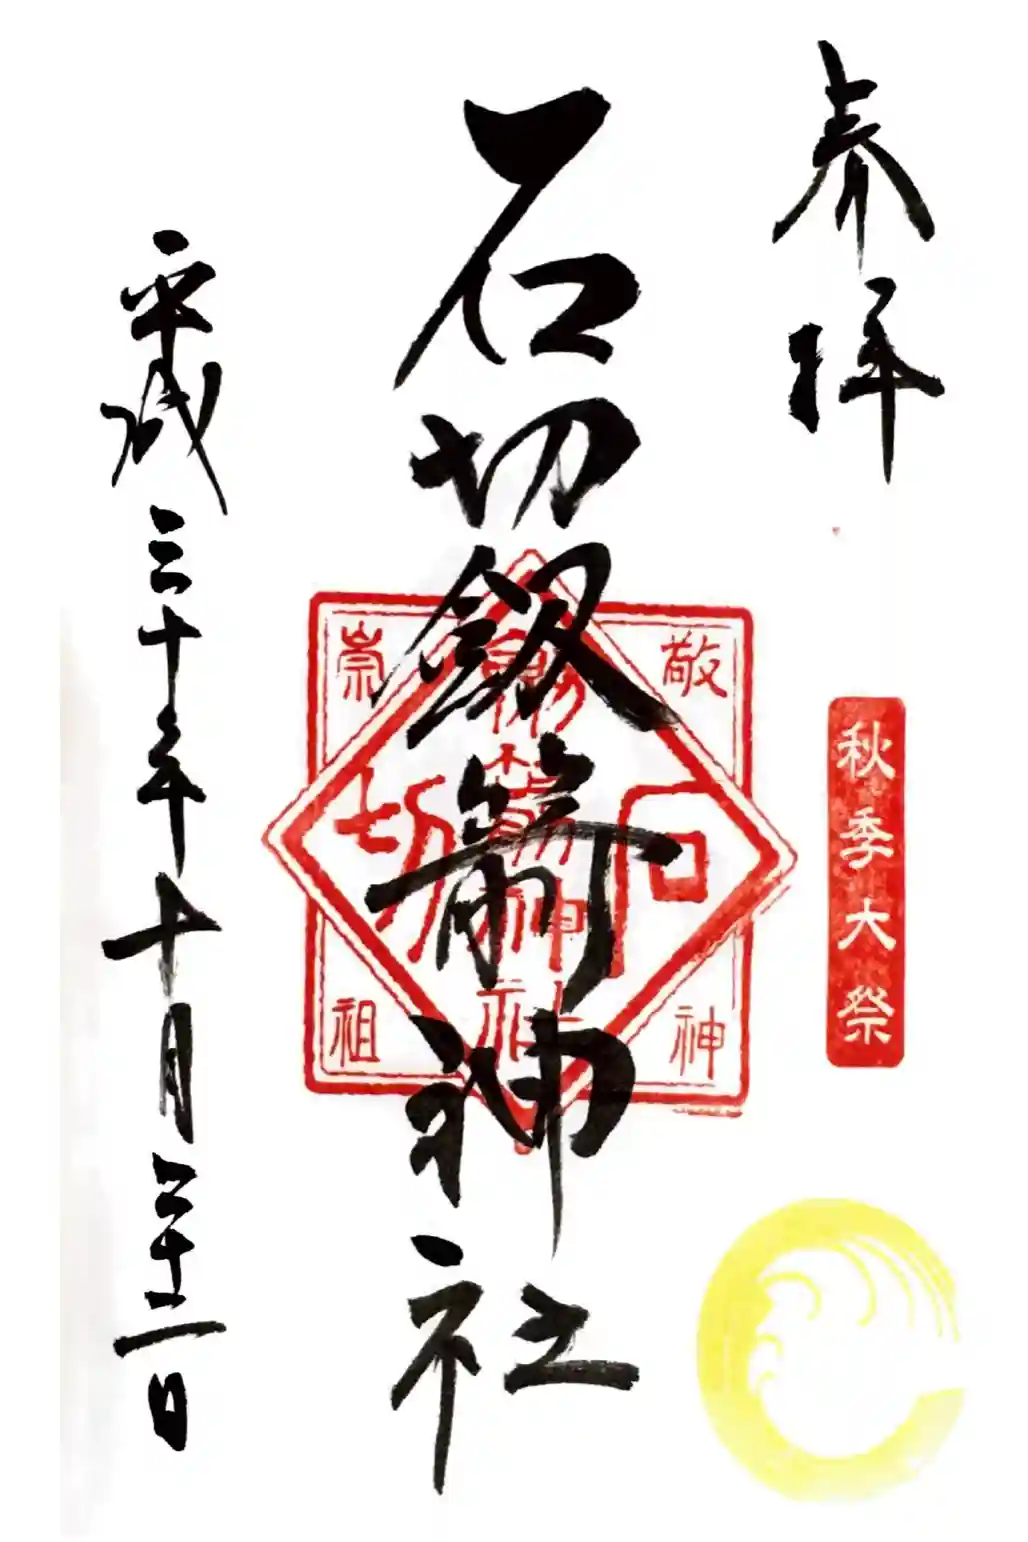 奉拝
秋季大祭
石切劔箭神社
敬神
崇祖
石切
劔箭神社
平成三十年十月二十二日